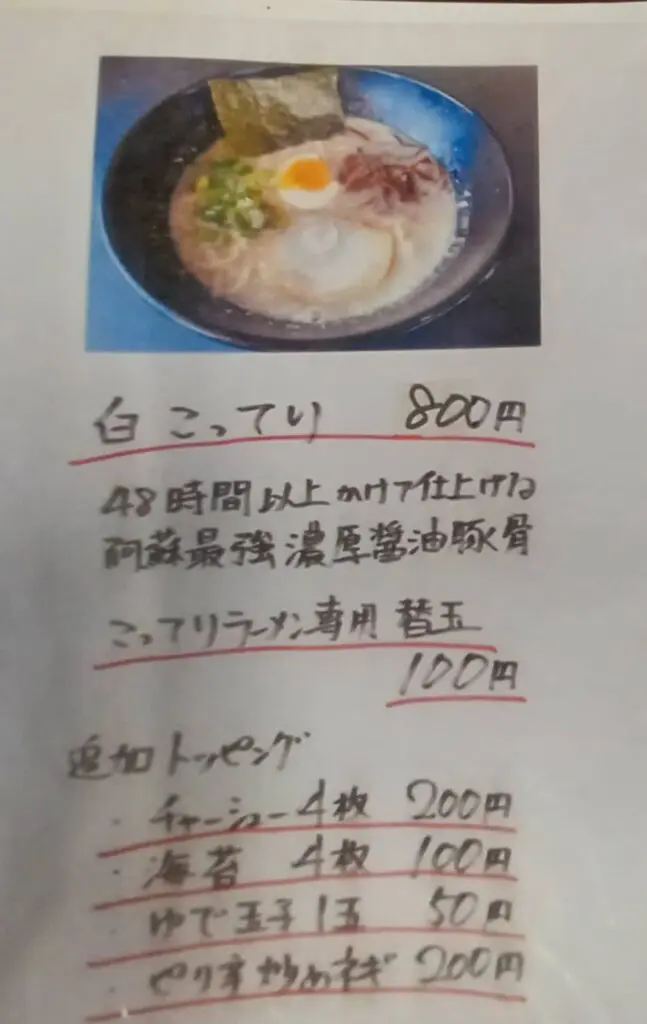 白 こってり 800円
48時間以上かけて仕上げる
阿蘇最強濃厚醤油豚骨
こってりラーメン専用 替玉
100円
追加トッピング
・チャーシュー4枚 200円
・海苔 4枚 100円
・ゆで玉子1玉 50円
・ピリ辛炒めネギ 200円